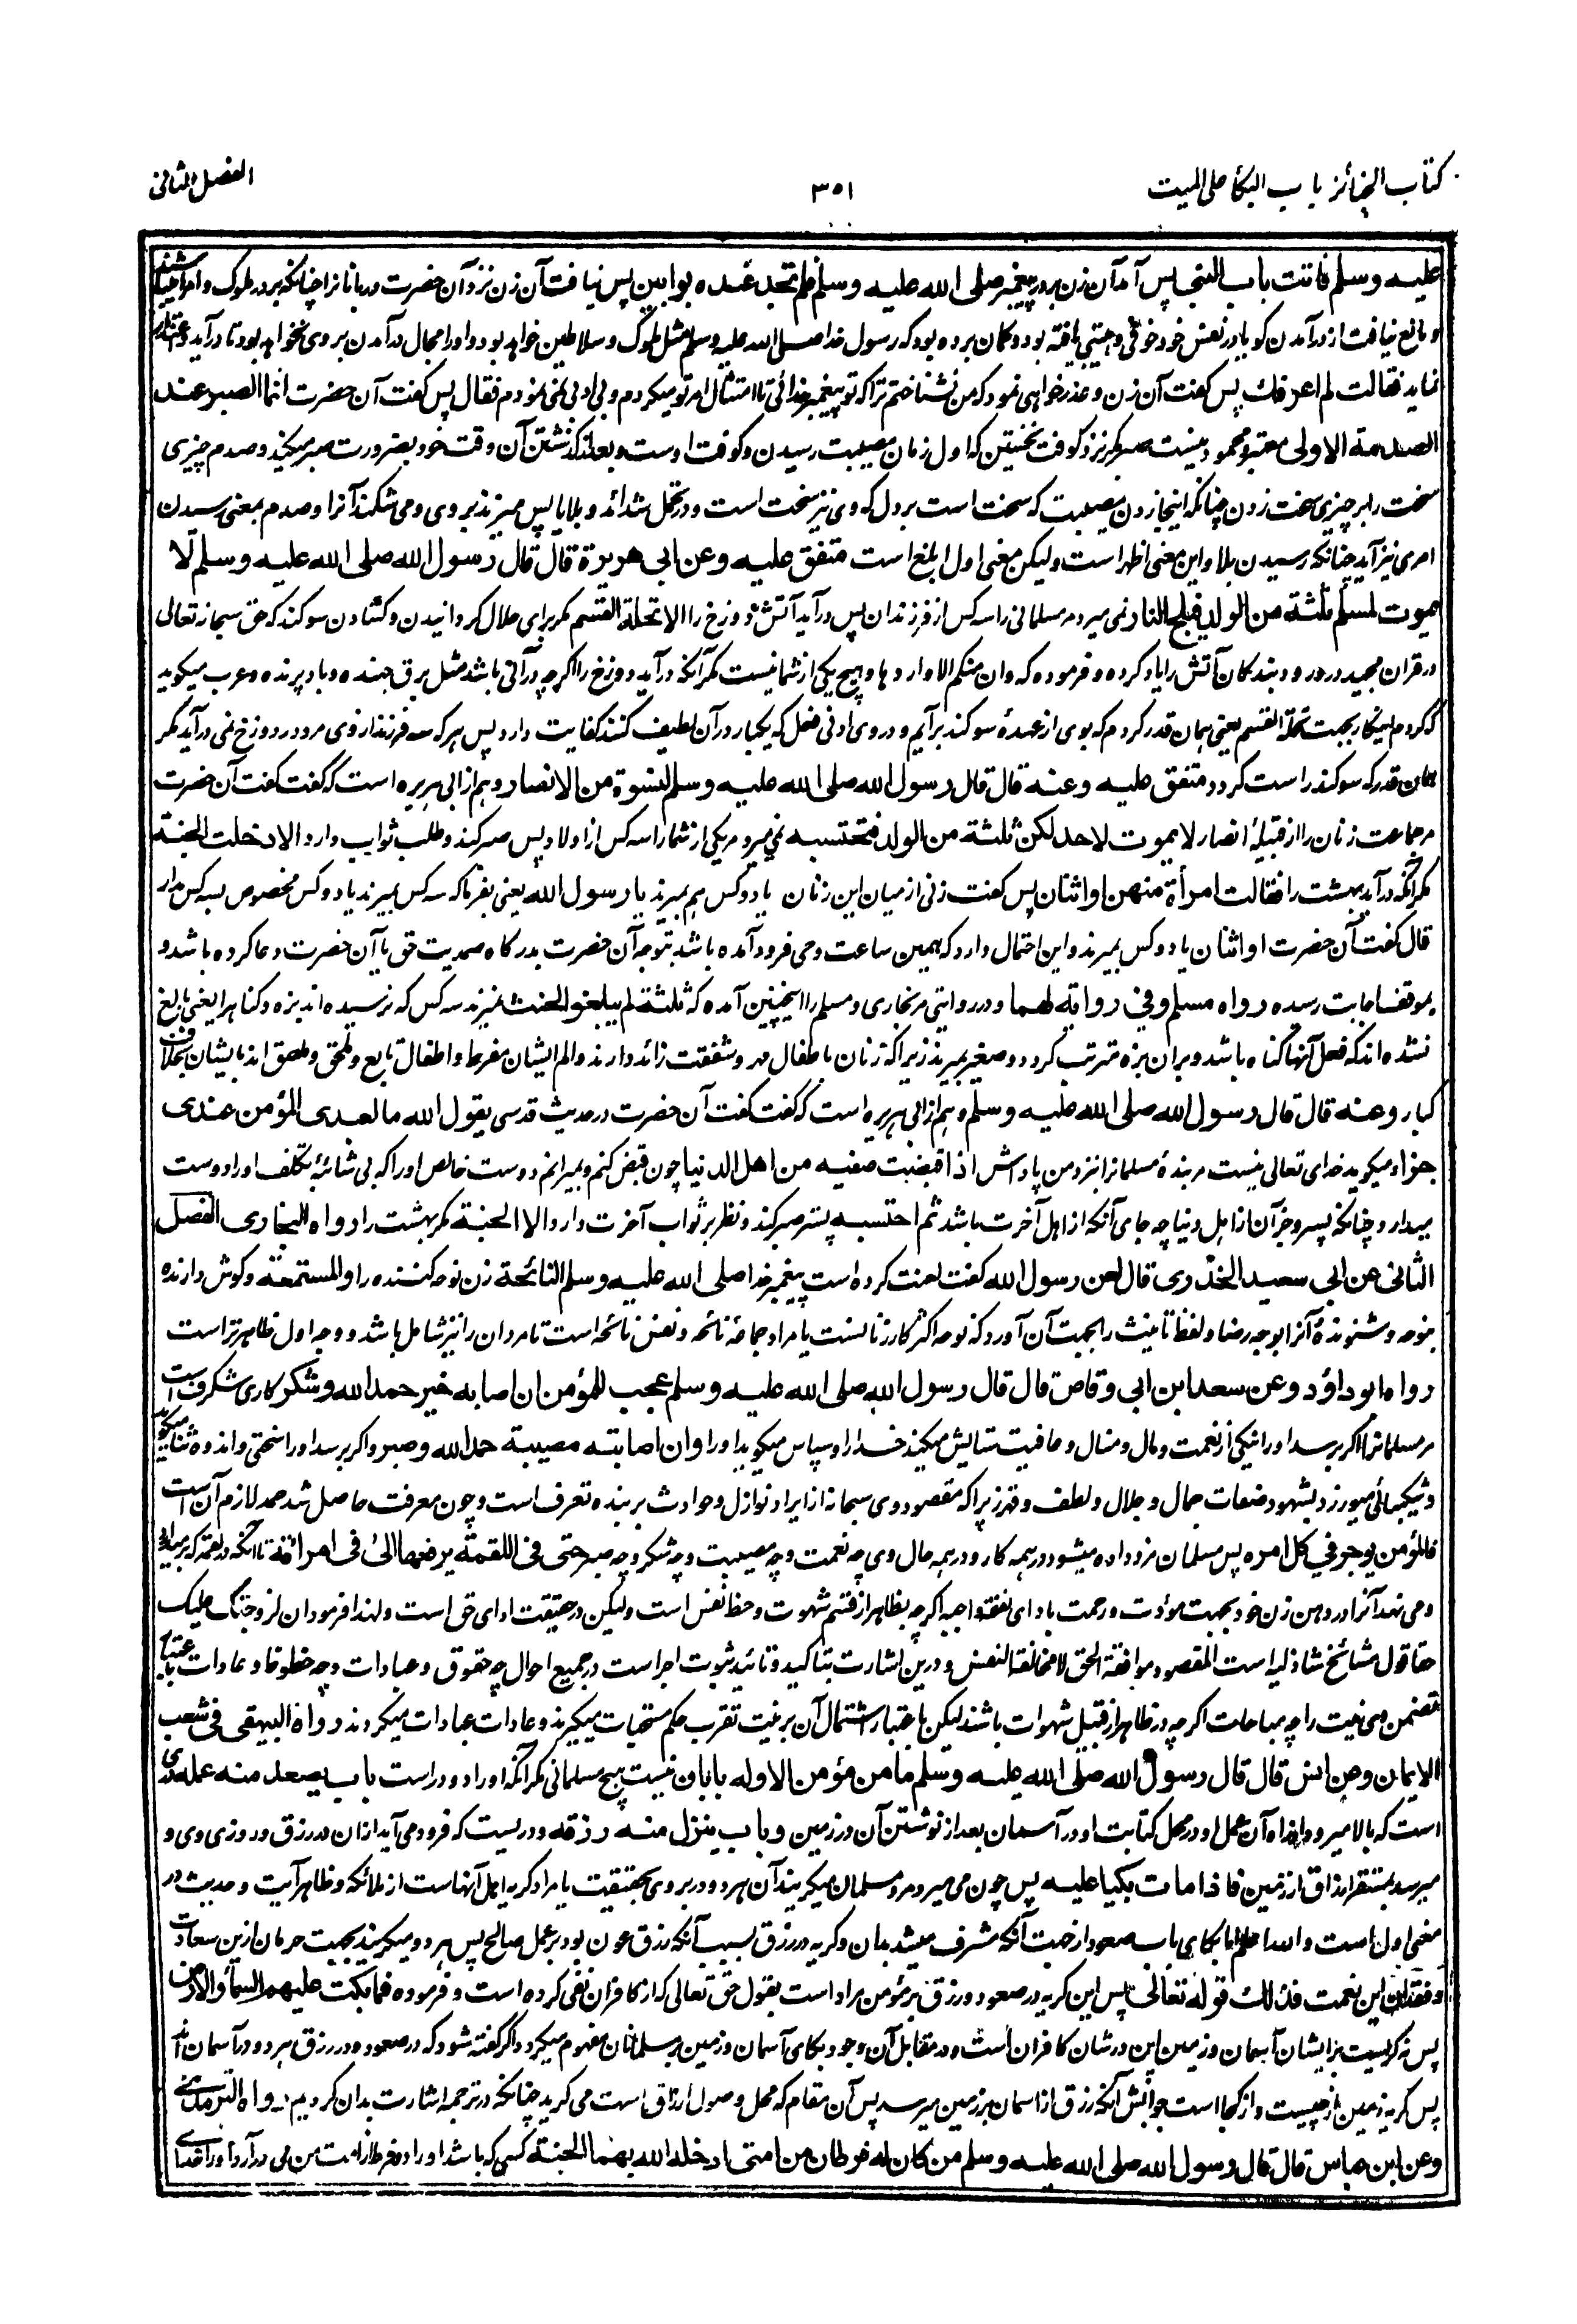 کتاب الجنائز باب البکا علی المیت
۳۵۱
الفصل الثانی
علیه وسلم فاتت باب النبی پس آمد آن زن بر در پیغمبر صلی الله علیه وسلم فلم تجد عنده بوابین پس نیافت آن زن نزد آن حضرت دربانانرا چنانکه بر در ملوک و امرا میباشند
و مانع نیافت از درآمدن گویا در نفس خود خوفی و هیبتی یافته بود و گمان برده بود که رسول خدا صلی الله علیه وسلم مثل ملوک و سلاطین خواهد بود و او را مجال درآمدن بر وی نخواهد بود تا درآید و اعتذار
نماید فقالت لم اعرفك پس گفت آن زن و عذرخواهی نمود که من نشناختم ترا که تو پیغمبر خدائی تا امتثال امر تو میکردم و بی ادبی نمی نمودم فقال پس گفت آن حضرت انما الصبر عند
الصدمة الاولی معتبر و محمود نیست صبر مگر نزد کوفت نخستین که اول زمان مصیبت رسیدن و کوفت اوست و بعد از گذشتن آن وقت خود بضرورت صبر میکند و صدم چیزی
سخت را بر چیزی سخت زدن چنانکه اینجا زدن مصیبت که سخت است بر دل که وی نیز سخت است و در تحمل شدائد و بلایا پس میزند بر وی و می شکند آنرا و صدم بمعنی رسیدن
امری نیز آید چنانکه رسیدن بلا و این معنی اظهر است ولیکن معنی اول ابلغ است متفق علیه وعن ابی هریرة قال قال رسول الله صلی الله علیه وسلم لا
یموت لمسلم ثلثة من الولد فیلج النار نمی میرد مر مسلمانی را سه کس از فرزندان پس درآید آتش دوزخ را الا تحلة القسم مگر برای حلال گردانیدن و کشادن سوگند که حق سبحانه تعالی
در قران مجید در ورود بندگان آتش را یاد کرده و فرموده که وان منکم الا واردها و هیچ یکی از شما نیست مگر آنکه درآید دوزخ را اگرچه درآنی باشد مثل برق جهنده و باد پرنده و عرب میگوید
که کردم اینکار بجهت تحلة القسم یعنی همان قدر کردم که بوی از عهدۀ سوگند برآیم و در وی ادنی فعل که یکبار در آن لطیف کنند کفایت دارد پس هر که سه فرزند از وی مرد در دوزخ نمی درآید مگر
همان قدر که سوگند راست گردد متفق علیه وعنه قال قال رسول الله صلی الله علیه وسلم لنسوة من الانصار و هم از ابی هریره است که گفت گفت آن حضرت
مر جماعت زنان را از قبیلۀ انصار لا یموت لاحدلکن ثلثة من الولد فتحتسبه نمی میرد مر یکی از شما را سه کس از اولاد پس صبر کند و طلب ثواب دارد الا دخلت الجنة
مگر آنکه درآید بهشت را فقالت امرأة منهن او اثنان پس گفت زنی از میان این زنان یا دو کس هم بمیرند یا رسول الله یعنی بفرما که سه کس بمیرند یا دو کس مخصوص بسه کس مدار
قال گفت آن حضرت او اثنان یا دو کس بمیرند و این احتمال دارد که همین ساعت وحی فرود آمده باشد بتوجه آن حضرت بدرگاه صمدیت حق یا آن حضرت دعا کرده باشد و
بموقف اجابت رسیده رواه مسلم وفی روایة لهما و در روایتی مر بخاری و مسلم را اینچنین آمده که ثلثة لم یبلغوا الحنث بمیرند سه کس که نرسیده اند بزه و گناه را یعنی بالغ
نشده اند که فعل آنها گناه باشد و بران بزه مترتب گردد و صغیر بمیرند زیرا که زنان باطفال مهر و شفقت زائد دارند و الم ایشان مفرط و اطفال تابع و ملحق و ملصق اند بایشان بخلاف
کبار وعنه قال قال رسول الله صلی الله علیه وسلم و هم از ابی هریره است که گفت گفت آن حضرت در حدیث قدسی یقول الله ما لعبدی المؤمن عندی
جزاء میگوید خدای تعالی نیست مر بندۀ مسلمانرا نزد من پاداش اذا قبضت صفیه من اهل الدنیا چون قبض کنم و بمیرانم دوست خالص او را که بی شائبۀ تکلف او را دوست
میدارد چنانکه پسر و جز آن از اهل دنیا چه جای آنکه از اهل آخرت باشد ثم احتسبه پستر صبر کند و نظر بر ثواب آخرت دارد الا الجنة مگر بهشت را رواه البخاری الفصل
الثانی عن ابی سعید الخدری قال لعن رسول الله گفت لعنت کرده است پیغمبر خدا صلی الله علیه وسلم النائحة زن نوحه کننده را والمستمعة و گوش دارنده
بنوحه و شنوندۀ آنرا بوجه رضا و لفظ تانیث را بجهت آن آورد که نوحه اکثر کار زنانست یا مراد جماعۀ نائحه و نفس نائحه است تا مردان را نیز شامل باشد و وجه اول ظاهرتر است
رواه ابو داؤد وعن سعد ابن ابی وقاص قال قال رسول الله صلی الله علیه وسلم عجب للمؤمن ان اصابه خیر حمد الله وشکر کاری شگرف است
مر مسلمانرا اگر برسد او را نیکی از نعمت و مال و منال و عافیت ستایش میکند خدا را و سپاس میگوید او را وان اصابته مصیبة حمد الله وصبر و اگر برسد او را سختی و اندوه ثنا میگوید
و شکیبائی میورزد بشهود صفات جمال و جلال و لطف و قهر زیرا که مقصود وی سبحانه از ایراد نوازل و حوادث بر بنده تعرف است و چون معرفت حاصل شد حمد لازم آن است
فالمؤمن یوجر فی کل امره پس مسلمان مزد داده میشود در همه کار و در همه حال وی چه نعمت و چه مصیبت و چه شکر و چه صبر حتی فی اللقمة یرفعها الی فی امرأته تا آنکه در لقمه که بر میدارد
و می نهد آنرا در دهن زن خود بجهت مؤادت و رحمت یا ادای نفقه واجبه اگرچه بظاهر از قسم شهوت و حظ نفس است ولیکن در حقیقت ادای حق است ولهذا فرمود ان لزوجتك علیك
حقا قول مشائخ شاذلیه است المقصود موافقة الحق لا مخالفة النفس و درین اشارت بتاکید و تائید ثبوت اجر است در جمیع احوال چه حقوق و عبادات و چه حظوظ و عادات باعتبار
تضمن وی نیت را چه مباحات اگرچه در ظاهر از قبیل شهوات باشند لیکن باعتبار اشتمال آن بر نیت تقرب حکم مستحبات میگیرند و عادات عبادات میگردند رواه البیهقی فی شعب
الایمان وعن انس قال قال رسول الله صلی الله علیه وسلم ما من مؤمن الا وله بابان نیست هیچ مسلمانی مگر آنکه او را دو در است باب یصعد منه عمله دری
است که بالا میرود ازان راه آن عمل او در محل کتابت او در آسمان بعد از نوشتن آن در زمین وباب ینزل منه رزقه و دریست که فرود می آید ازان در رزق و روزی وی و
میرسد بمستقر ارزاق از زمین فاذا مات بکیا علیه پس چون می میرد مرد مسلمان میگریند آن هر دو در بر وی بحقیقت یا مراد گریه اهل آنهاست از ملائکه و ظاهر آیت و حدیث در
معنی اول است والله اعلم اما بکای باب صعود از جهت آنکه مشرف میشد بدان و گریه در رزق بسبب آنکه رزق عون بود بر عمل صالح پس هر دو میگریند بجهت حرمان ازین سعادت
و فقدان این نعمت فذلك قوله تعالی پس این گریه در صعود و رزق بر مؤمن مراد است بقول حق تعالی که از کافران نفی کرده است و فرموده فما بکت علیهم السماء والارض
پس نه گریست بر ایشان آسمان و زمین این در شان کافران است و در مقابل آن وجود بکای آسمان و زمین بر مسلمانان مفهوم میگردد و اگر گفته شود که در صعود و در رزق هر دو در آسمان اند
پس گریه زمین از چیست و از کجا است جوابش آنکه رزق از اسمان بر زمین میرسد پس آن مقام که محل وصول ارزاق است می گرید چنانکه در ترجمه اشارت بدان کردیم رواه الترمذی
وعن ابن عباس قال قال رسول الله صلی الله علیه وسلم من کان له فرطان من امتی ادخله الله بهما الجنة کسی که باشد او را دو فرط از امت من می درآرد او را خدای